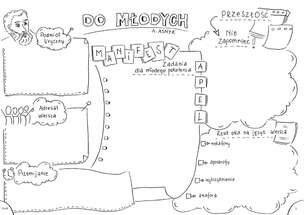 DO MŁODYCH
A. ASNYK
Podmiot
liryczny
MANIFEST
Zadania
dla młodego pokolenia
APEL
PRZESZŁOŚĆ
Nie
zapomnieć!
Adresat
wiersza
Rzut oka na język wiersza
epitety
Przemijanie
strofika